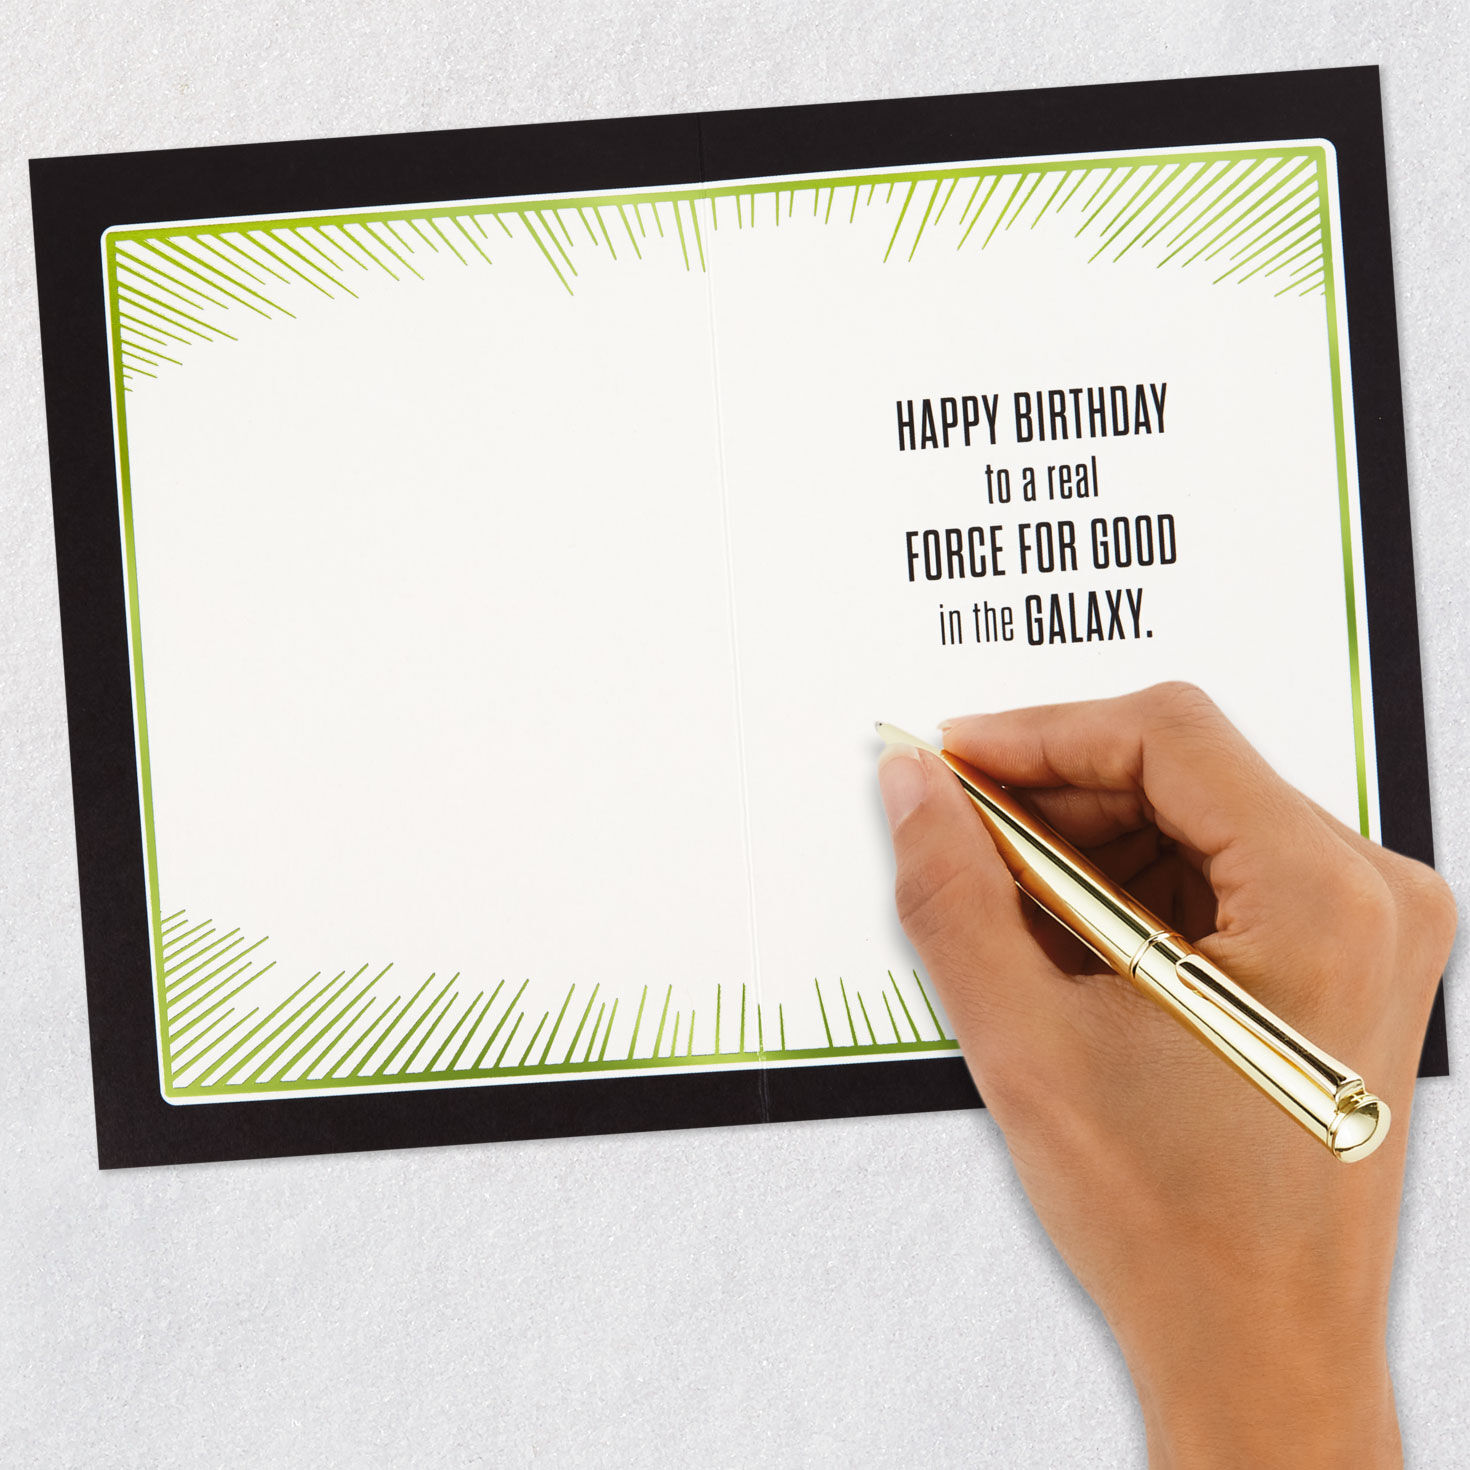 HAPPY BIRTHDAY
to a real
FORCE FOR GOOD
in the GALAXY.